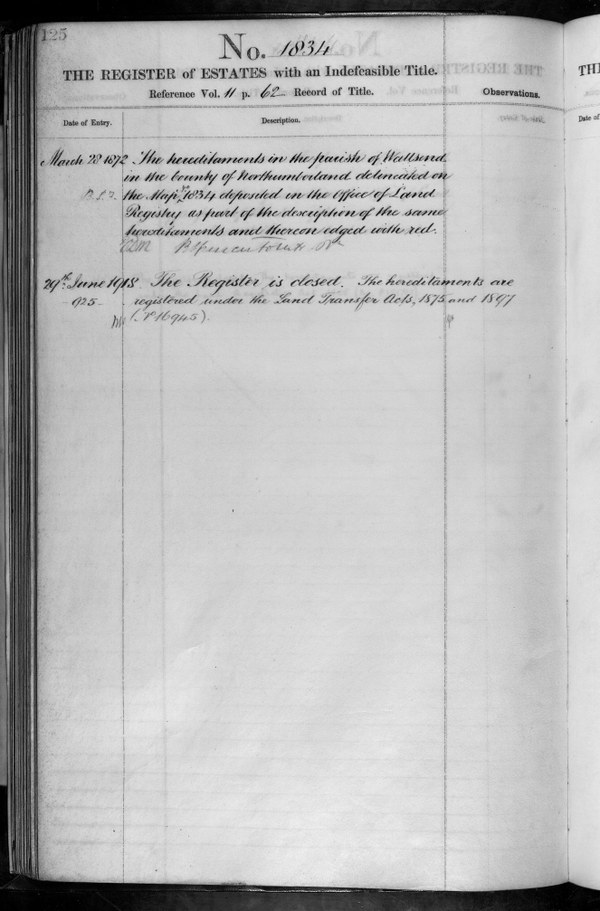 125
No. 1834
THE REGISTER of ESTATES with an Indefeasible Title.
Reference Vol. 11 p. 62 Record of Title.
Observations.
Date of Entry.
Description.
March 28 1872 The hereditaments in the parish of Wallsend
in the County of Northumberland delineated on
the Map No 1834 deposited in the Office of Land
Registry as part of the description of the same
hereditaments and thereon edged with red.
29th June 1918. The Register is closed. The hereditaments are
925. registered under the Land Transfer Acts, 1875 and 1897
(No 16945).
THE
Date of